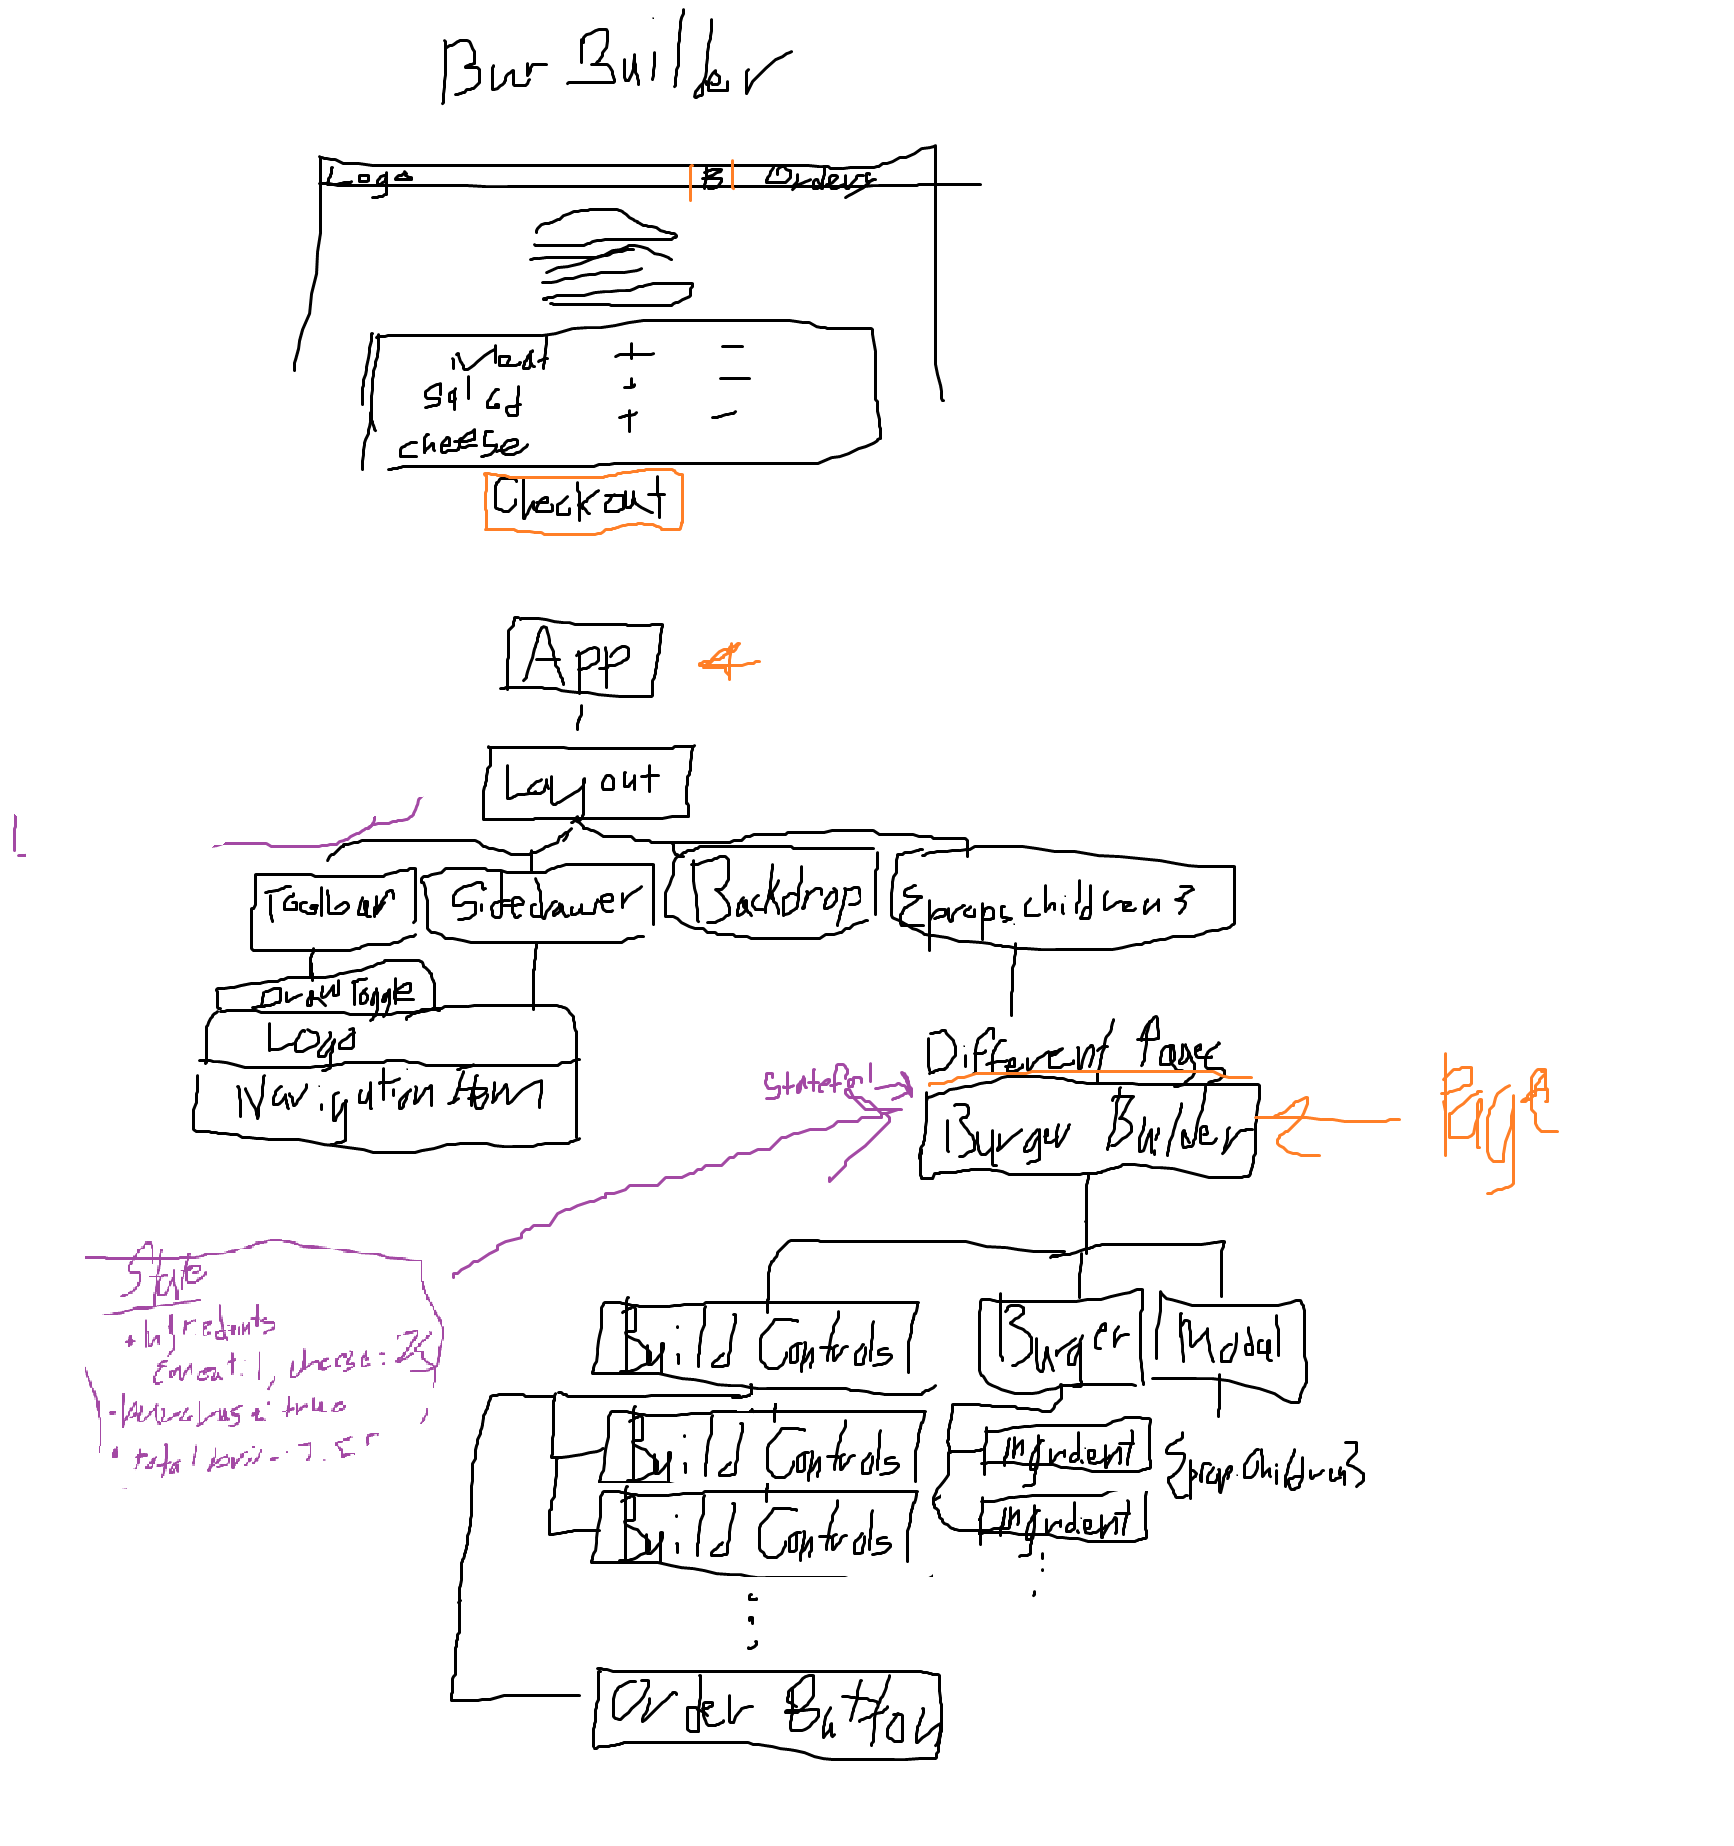 Bur Builder
Logo B Orders
Meat + -
Salad + -
cheese + -
Checkout
App
Layout
Toolbar Sidedrawer Backdrop {props.children}
Draw Toggle
Logo
Navigation Item
Different Pages
Stateful
Burger Builder
Page
State
Ingredients
{meat:1, cheese:2}
purchase: true
total
Build Controls Burger Modal
Build Controls Ingrdent {prop.Children}
Build Controls Ingrdent
Order Button